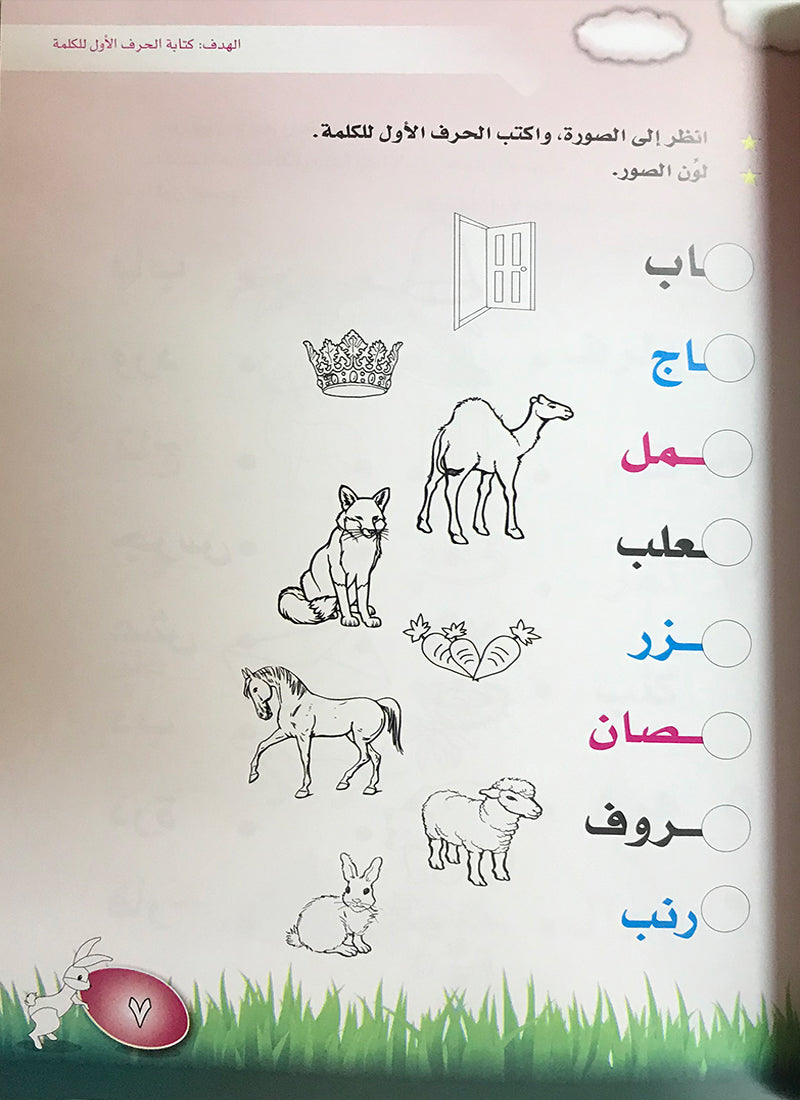 الهدف: كتابة الحرف الأول للكلمة
انظر إلى الصورة، واكتب الحرف الأول للكلمة.
لوِّن الصور.
ـاب
ـاج
ـمل
ـعلب
ـزر
ـصان
ـروف
رنب
٧